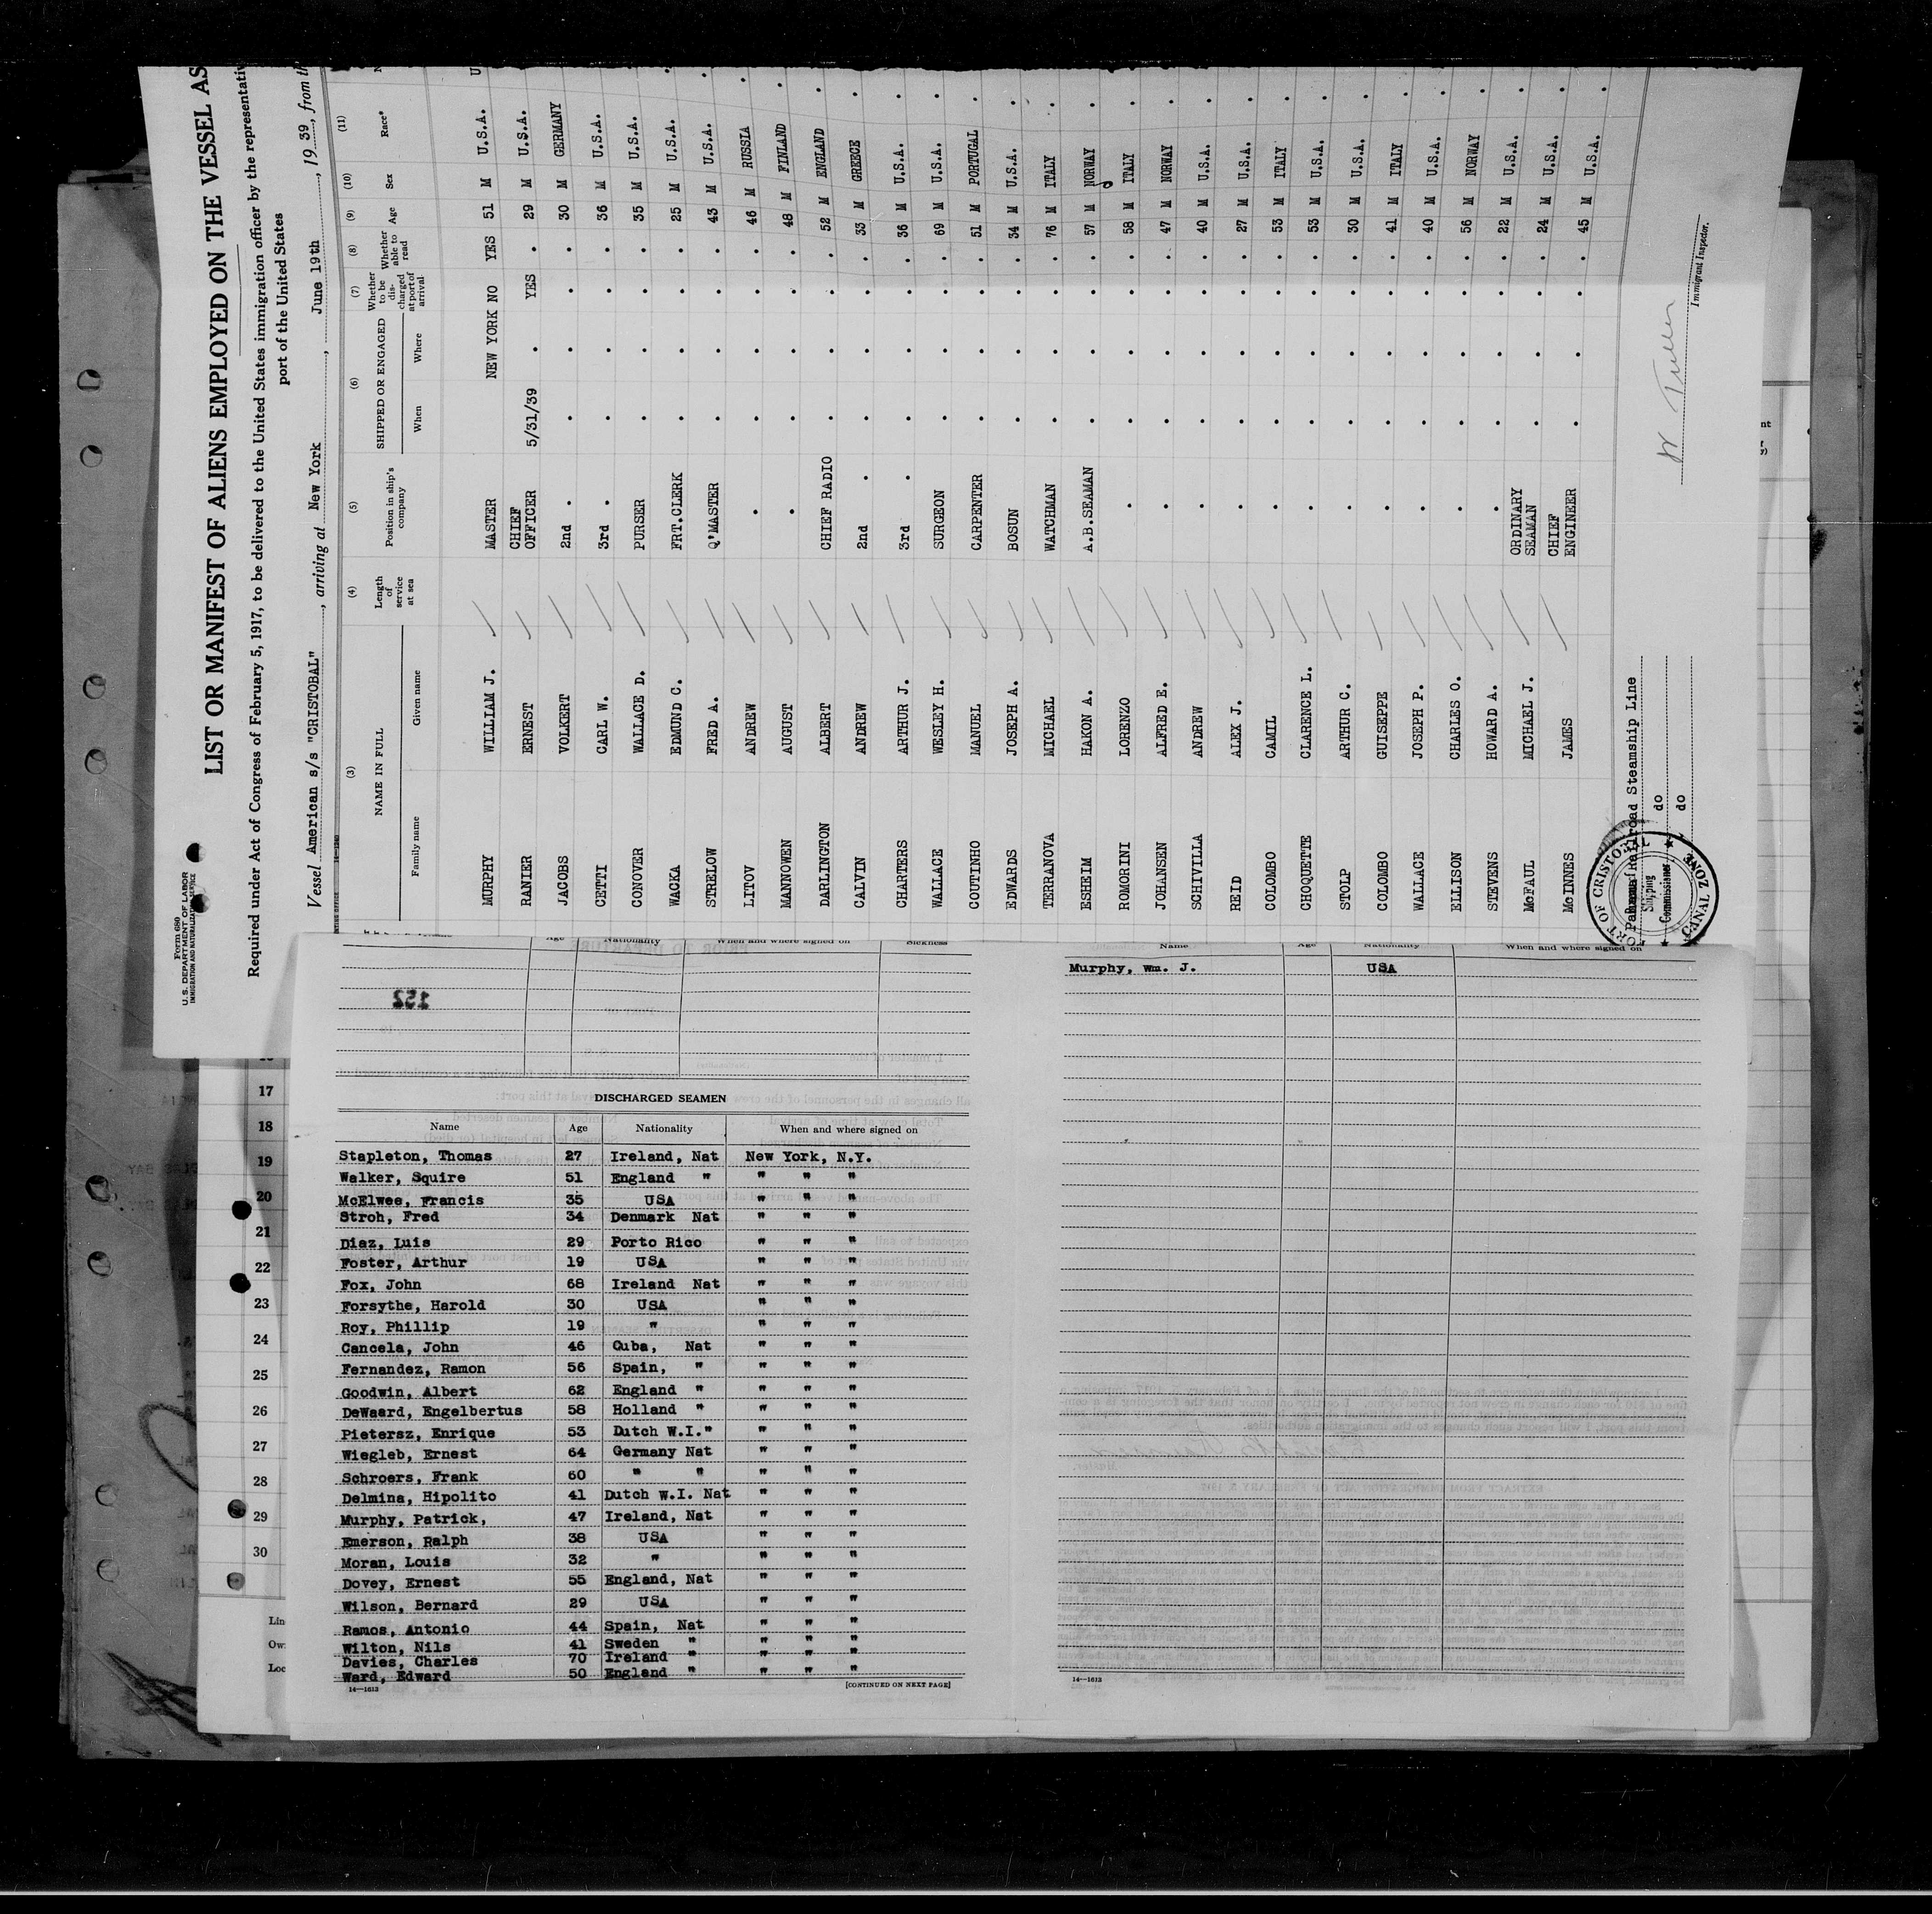 Form 680
U. S. DEPARTMENT OF LABOR
IMMIGRATION AND NATURALIZATION SERVICE
LIST OR MANIFEST OF ALIENS EMPLOYED ON THE VESSEL AS
Required under Act of Congress of February 5, 1917, to be delivered to the United States immigration officer by the representativ
port of the United States
Vessel American s/s "CRISTOBAL", arriving at New York, June 19th, 19 39, from th
(3) (4) (5) (6) (7) (8) (9) (10) (11)
NAME IN FULL Length of service at sea Position in ship's company SHIPPED OR ENGAGED Whether to be discharged at port of arrival Whether able to read Age Sex Race*
Family name Given name When Where
MURPHY WILLIAM J. MASTER NEW YORK NO YES 51 M U.S.A. U
RANIER ERNEST CHIEF OFFICER 5/31/39 . YES . 29 M U.S.A.
JACOBS VOLKERT 2nd . . . . . 30 M GERMANY
CETTI CARL W. 3rd . . . . . 36 M U.S.A.
CONOVER WALLACE D. PURSER . . . . 35 M U.S.A.
WACKA EDMUND C. FRT.CLERK . . . . 25 M U.S.A.
STRELOW FRED A. Q'MASTER . . . . 43 M U.S.A.
LITOV ANDREW . . . . . 46 M RUSSIA
MANNOWEN AUGUST . . . . . 48 M FINLAND
DARLINGTON ALBERT CHIEF RADIO . . . . 52 M ENGLAND
CALVIN ANDREW 2nd . . . . . 33 M GREECE
CHARTERS ARTHUR J. 3rd . . . . . 36 M U.S.A.
WALLACE WESLEY H. SURGEON . . . . 69 M U.S.A.
COUTINHO MANUEL CARPENTER . . . . 51 M PORTUGAL
EDWARDS JOSEPH A. BOSUN . . . . 34 M U.S.A.
TERRANOVA MICHAEL WATCHMAN . . . . 76 M ITALY
ESHEIM HAKON A. A.B.SEAMAN . . . . 57 M NORWAY
ROMORINI LORENZO . . . . . 58 M ITALY
JOHANSEN ALFRED E. . . . . . 47 M NORWAY
SCHIVILLA ANDREW . . . . . 40 M U.S.A.
REID ALEX J. . . . . . 27 M U.S.A.
COLOMBO CAMIL . . . . . 53 M ITALY
CHOQUETTE CLARENCE L. . . . . . 53 M U.S.A.
STOLP ARTHUR C. . . . . . 30 M U.S.A.
COLOMBO GUISEPPE . . . . . 41 M ITALY
WALLACE JOSEPH P. . . . . . 40 M U.S.A.
ELLISON CHARLES O. . . . . . 56 M NORWAY
STEVENS HOWARD A. . . . . . 22 M U.S.A.
McFAUL MICHAEL J. ORDINARY SEAMAN . . . . 24 M U.S.A.
McINNES JAMES CHIEF ENGINEER . . . . 45 M U.S.A.
Panama Railroad Steamship Line
do
do
PORT OF CRISTOBAL
Shipping Commissioner
CANAL ZONE
Immigrant Inspector.
Age Nationality When and where signed on Sickness
152
DISCHARGED SEAMEN
Name Age Nationality When and where signed on
Stapleton, Thomas 27 Ireland, Nat New York, N.Y.
Walker, Squire 51 England " " " "
McElwee, Francis 35 USA " " "
Stroh, Fred 34 Denmark Nat " " "
Diaz, Luis 29 Porto Rico " " "
Foster, Arthur 19 USA " " "
Fox, John 68 Ireland Nat " " "
Forsythe, Harold 30 USA " " "
Roy, Phillip 19 " " " "
Cancela, John 46 Cuba, Nat " " "
Fernandez, Ramon 56 Spain, " " " "
Goodwin, Albert 62 England " " " "
DeWaard, Engelbertus 58 Holland " " " "
Pietersz, Enrique 53 Dutch W.I." " " "
Wiegleb, Ernest 64 Germany Nat " " "
Schroers, Frank 60 " " " " "
Delmina, Hipolito 41 Dutch W.I. Nat " " "
Murphy, Patrick, 47 Ireland, Nat " " "
Emerson, Ralph 38 USA " " "
Moran, Louis 32 " " " "
Dovey, Ernest 55 England, Nat " " "
Wilson, Bernard 29 USA " " "
Ramos, Antonio 44 Spain, Nat " " "
Wilton, Nils 41 Sweden " " " "
Davies, Charles 70 Ireland " " " "
Ward, Edward 50 England " " " "
14—1613 [CONTINUED ON NEXT PAGE]
Name Age Nationality When and where signed on
Murphy, Wm. J. USA
14—1613
17
18
19
20
21
22
23
24
25
26
27
28
29
30